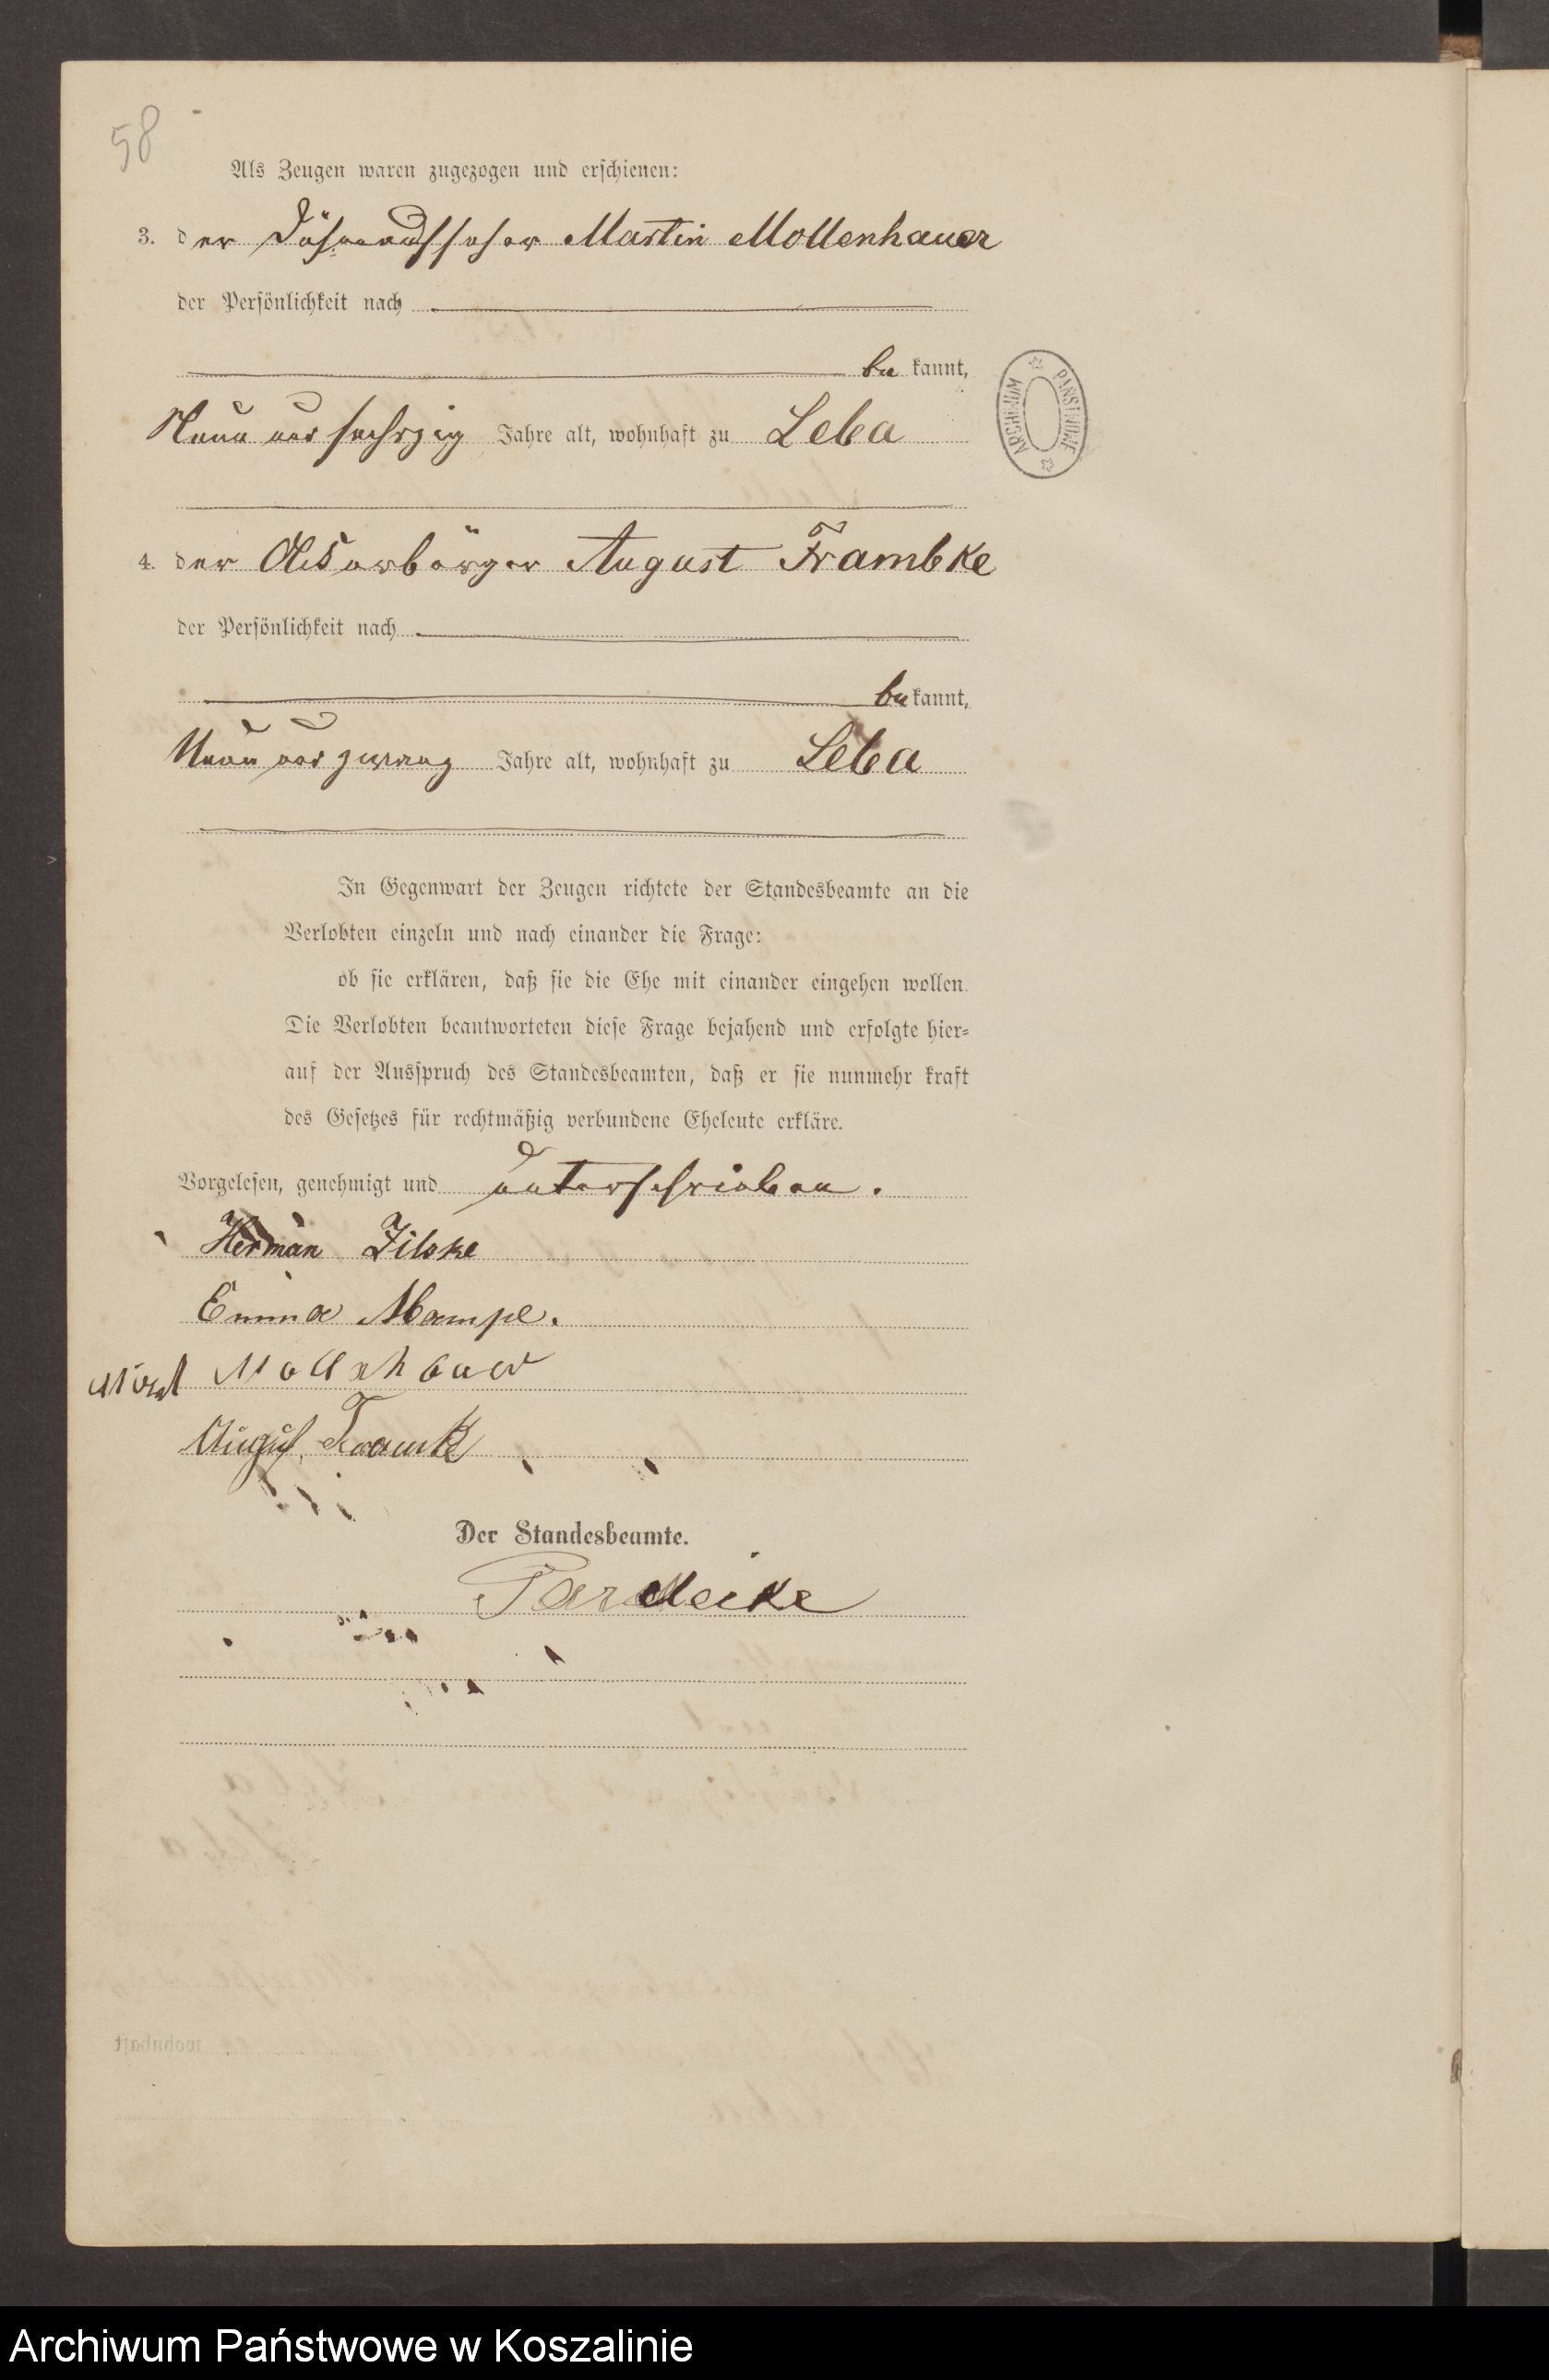 58
Als Zeugen waren zugezogen und erschienen:
3. der Dünenaufseher Martin Mollenhauer
der Persönlichkeit nach
be kannt,
Neun und sechszig Jahre alt, wohnhaft zu Leba
4. der Ackerbürger August Frambke
der Persönlichkeit nach
be kannt,
Neun und zwanzig Jahre alt, wohnhaft zu Leba
In Gegenwart der Zeugen richtete der Standesbeamte an die
Verlobten einzeln und nach einander die Frage:
ob sie erklären, daß sie die Ehe mit einander eingehen wollen.
Die Verlobten beantworteten diese Frage bejahend und erfolgte hier-
auf der Ausspruch des Standesbeamten, daß er sie nunmehr kraft
des Gesetzes für rechtmäßig verbundene Eheleute erkläre.
Vorgelesen, genehmigt und unterschrieben.
Herman Zilske
Emma Mampe.
Mollnhauer
August
Der Standesbeamte.
Pardeike
ARCHIWUM PAŃSTWOWE
wohnhaft
Archiwum Państwowe w Koszalinie